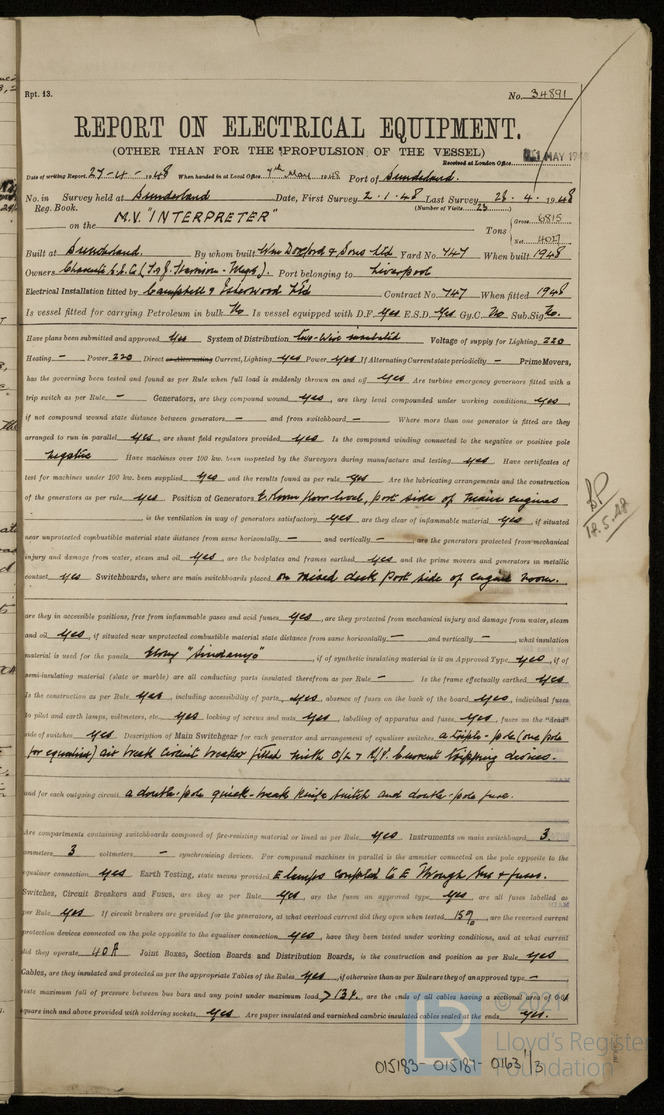 Rpt. 13.
No. 34891
REPORT ON ELECTRICAL EQUIPMENT.
(OTHER THAN FOR THE PROPULSION OF THE VESSEL)
Received at London Office 11 MAY 1948
Date of writing Report 27-4- 1948 When handed in at Local Office 7th May 1948 Port of Sunderland.
No. in Survey held at Sunderland Date, First Survey 2.1.48 Last Survey 28.4.1948
Reg. Book. (Number of Visits 23)
on the M.V. "INTERPRETER" Tons Gross 6815
Net 4017
Built at Sunderland. By whom built Wm Doxford & Sons Ltd Yard No. 747 When built 1948
Owners Charente S.S. Co (T. & J. Harrison - Mgrs). Port belonging to Liverpool
Electrical Installation fitted by Campbell & Isherwood Ltd Contract No. 747 When fitted 1948
Is vessel fitted for carrying Petroleum in bulk No Is vessel equipped with D.F. Yes E.S.D. Yes Gy.C. No Sub.Sig. No.
Have plans been submitted and approved Yes System of Distribution Two-Wire insulated Voltage of supply for Lighting 220
Heating - Power 220 Direct or Alternating Current, Lighting Yes Power Yes If Alternating Current state periodicity - Prime Movers,
has the governing been tested and found as per Rule when full load is suddenly thrown on and off Yes Are turbine emergency governors fitted with a
trip switch as per Rule - Generators, are they compound wound Yes, are they level compounded under working conditions Yes,
if not compound wound state distance between generators - and from switchboard - Where more than one generator is fitted are they
arranged to run in parallel Yes, are shunt field regulators provided Yes Is the compound winding connected to the negative or positive pole
Negative Have machines over 100 kw. been inspected by the Surveyors during manufacture and testing Yes Have certificates of
test for machines under 100 kw. been supplied Yes and the results found as per rule Yes Are the lubricating arrangements and the construction
of the generators as per rule Yes Position of Generators E. Room floor level, port side of main engines
, is the ventilation in way of generators satisfactory Yes are they clear of inflammable material Yes, if situated
near unprotected combustible material state distance from same horizontally - and vertically - are the generators protected from mechanical
injury and damage from water, steam and oil Yes, are the bedplates and frames earthed Yes and the prime movers and generators in metallic
contact Yes Switchboards, where are main switchboards placed on mixed deck port side of engine room.
are they in accessible positions, free from inflammable gases and acid fumes Yes, are they protected from mechanical injury and damage from water, steam
and oil Yes, if situated near unprotected combustible material state distance from same horizontally - and vertically -, what insulation
material is used for the panels Ebony "Sindanyo", if of synthetic insulating material is it an Approved Type Yes, if of
semi-insulating material (slate or marble) are all conducting parts insulated therefrom as per Rule - Is the frame effectually earthed Yes
Is the construction as per Rule Yes, including accessibility of parts Yes, absence of fuses on the back of the board Yes, individual fuses
to pilot and earth lamps, voltmeters, etc. Yes locking of screws and nuts Yes, labelling of apparatus and fuses Yes, fuses on the "dead"
side of switches Yes Description of Main Switchgear for each generator and arrangement of equaliser switches a triple-pole (one pole
for equaliser) air break circuit breaker fitted with O/L & R/V. Current tripping devices.
and for each outgoing circuit a double-pole quick-break knife switch and double-pole fuse.
Are compartments containing switchboards composed of fire-resisting material or lined as per Rule Yes Instruments on main switchboard 3.
ammeters 3 voltmeters - synchronising devices. For compound machines in parallel is the ammeter connected on the pole opposite to the
equaliser connection Yes Earth Testing, state means provided E lamps coupled to E through sws & fuses.
Switches, Circuit Breakers and Fuses, are they as per Rule Yes, are the fuses an approved type Yes, are all fuses labelled as
per Rule Yes If circuit breakers are provided for the generators, at what overload current did they open when tested 15%, are the reversed current
protection devices connected on the pole opposite to the equaliser connection Yes, have they been tested under working conditions, and at what current
did they operate 40A Joint Boxes, Section Boards and Distribution Boards, is the construction and position as per Rule Yes
Cables, are they insulated and protected as per the appropriate Tables of the Rules Yes, if otherwise than as per Rule are they of an approved type -,
state maximum fall of pressure between bus bars and any point under maximum load > 13V. are the ends of all cables having a sectional area of 0·04
square inch and above provided with soldering sockets Yes Are paper insulated and varnished cambric insulated cables sealed at the ends Yes.
18.5.48
© 2021
LR
Lloyd's Register
Foundation
015183- 015187- 0163 1/3